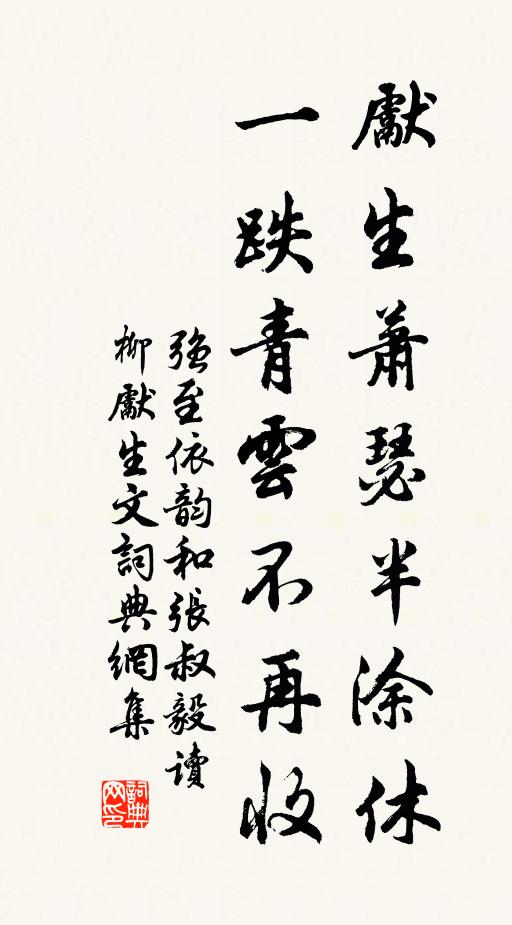 獻生蕭瑟半涂休
一跌青雲不再收
強至依韵和張叔毅讀
柳獻生文詞典網集
詞典网印